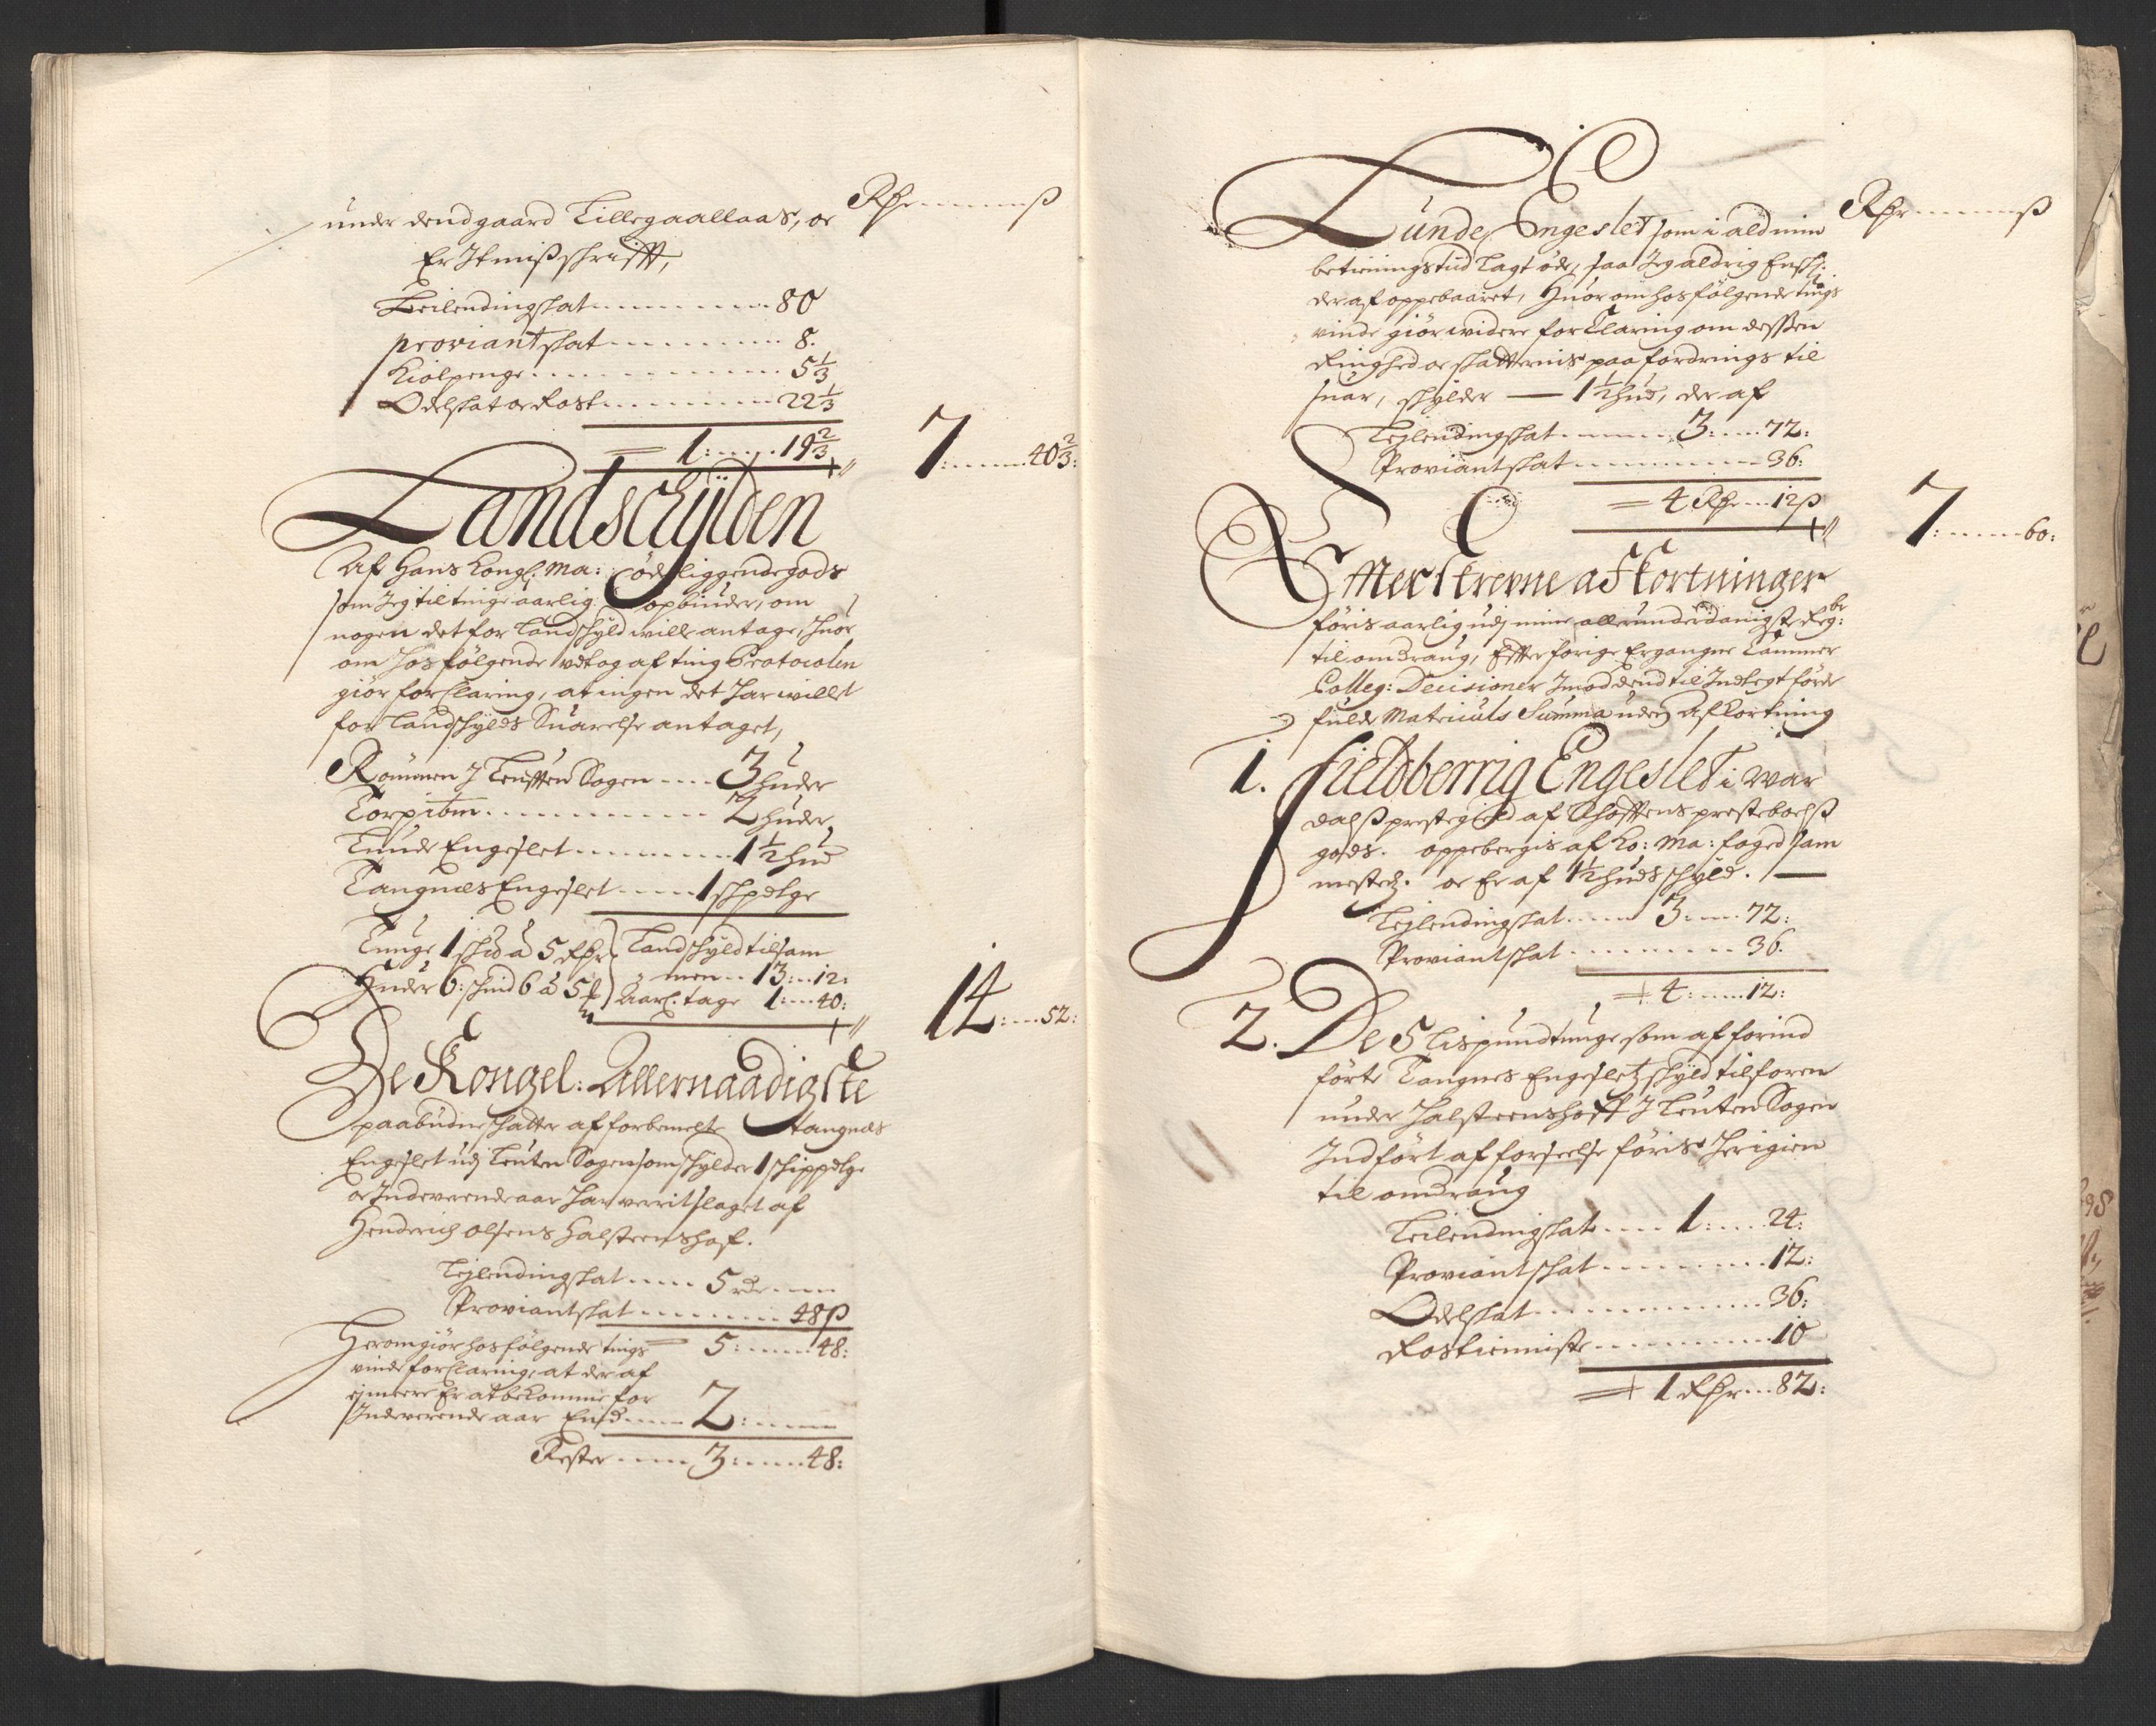 under dend gaard Tillegaallaas, oc
Er Itmiß schrifft,
Rdr ß
Leilendingskat 80
proviant skat 8.
Kiolpenge 5 1/3
Odelskat oc Rost 22 1/3
= 1: 19 2/3
7: 40 2/3:
Landschÿlden
Af Hans Kongl: Ma: ødeliggende gods
som Jeg til tinge aarlig opbiuder, om
nogen det for landschyld wille antage, huor
om hosfølgende udtog af ting Protocolen
giør forklaring, at ingen det har willet
for landschylds Suarelse antaget,
Rømmen J Leuthen Sogen 3 huder
Torpitm 2 huder
Lunde Engeslet 1½ hud
Tangnæs Engeslet 1 schpdtge
Tunge 1 schd a 5 Rdr Landschyld tilsam
Huder 6: schind 6 a 5 men 13: 12:
Aarl: tage 1: 40:
14: 52:
De Kongel: Allernaadigste
paabudne schatter af forbemelte Tangnæs
Engeslet udj Leuten Sogen som schylder 1 schippdtge
oc Indeverende aar har verrit slaget af
Henderich olsens halsteenshof.
Lejlendingskat 5 rdr
Proviantskat 48 ß
= 5: 48:
Herom giør hosfølgende tings
vinde forklaring, at der af
ej meere Er at bekomme for
Indeverende aar End 2:
Rester 3: 48:
Rdr ß
Lunde Engeslet som i ald min
betieningstid lagt øde, saa Jeg aldrig Ensk:
der af oppebaaret, huorom hosfølgende tings
vinde giør widere forklaring om dessen
Ringhed oc schatternis paafordrings til
suar, schylder — 1½ hud, der af
Lejlendingskat 3: 72:
Proviantskat 36:
= 4 Rdr 12 ß
7: 60:
Effterskrevne afkortninger
føris aarlig udj mine allerunderdanigste Reg:
til omdraug, Effter forige Ergangne Cammer
Colleg: Decisioner Imod dend til Indtegt førde
fulde Matriculs Summa uden Afkortning
1. Fieldberrig Engeslet i War
dahlß prestegield af Schofftens prestebohlß
gods. oppebergis af Ko: Ma: foged sam
mesteds. oc Er af 1½ huds schyld. —
Lejlendingskat 3: 72:
Proviantskat 36.
4: 12:
2. De 5 Lispund tunge som af forind
førte Tangnes Engesletz schyld tilforen
under halsteenshoff J Leuten Sogen
Indført af forseelse føris herigien
til omdraug
Leilendingskat 1: 24:
Proviantskat 12:
Odelskat 36:
Rostienniste 10
1 Rdr 82: